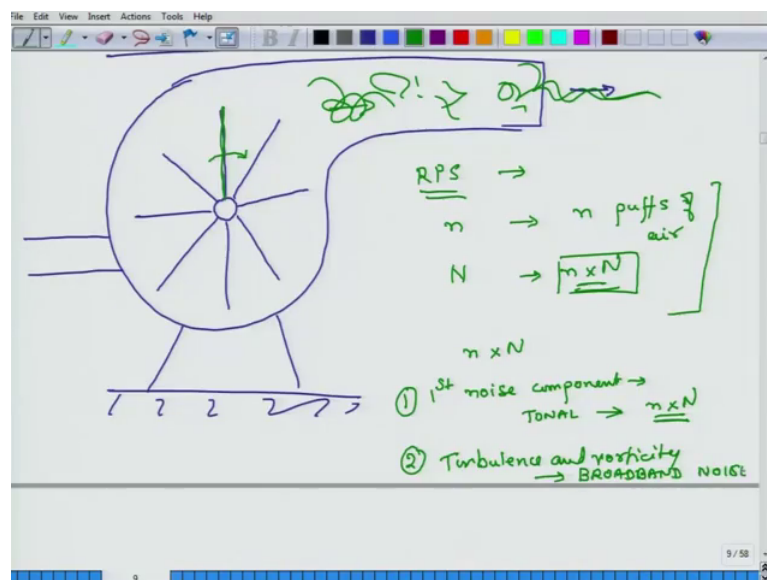 File Edit View Insert Actions Tools Help
B I
RPS →
n → n puffs of
air
N → n x N
n x N
① 1st noise component →
TONAL → n x N
② Turbulence and vorticity
→ BROADBAND NOISE
9 / 58
9